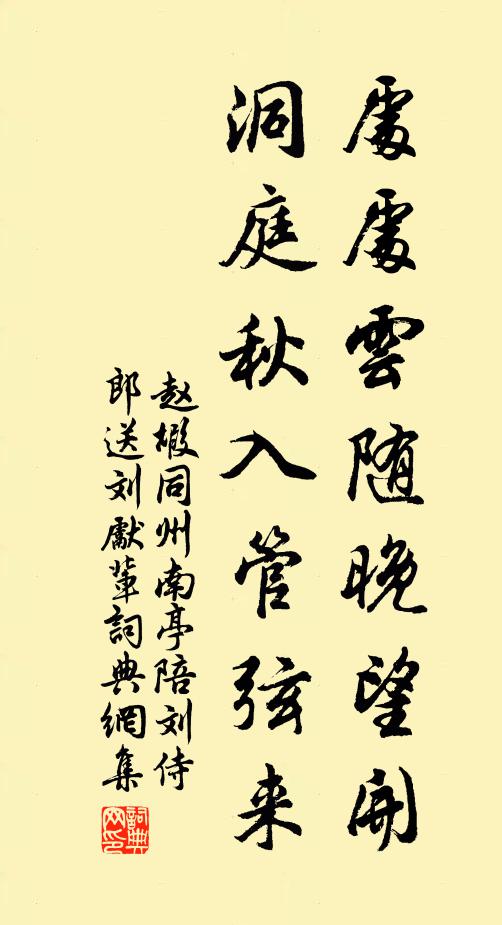 處處雲随晚望開
洞庭秋入管弦来
赵嘏同州南亭陪刘侍
郎送刘獻辈詞典網集
詞典网印